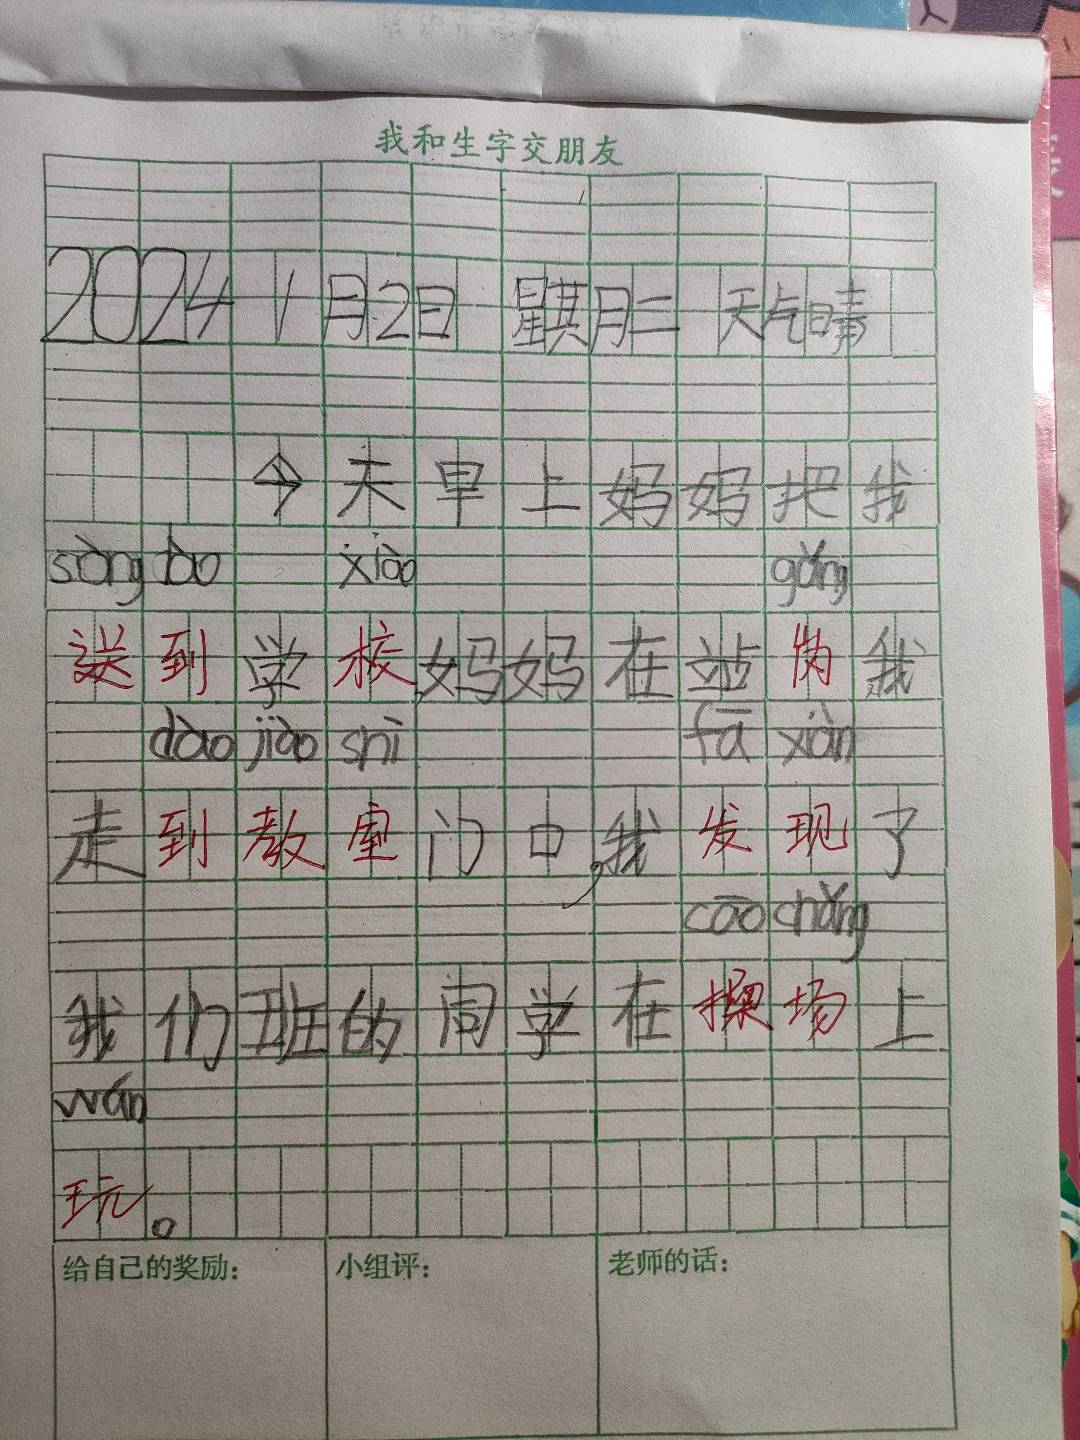 我和生字交朋友
2024 1月2日 星期二 天气晴
今天早上妈妈把我
sòng dào xiào gǎng
送到学校,妈妈在站岗我
dào jiào shì fā xiàn
走到教室门口,我发现了
cāo chǎng
我们班的同学在操场上
wán
玩。
给自己的奖励: 小组评: 老师的话: